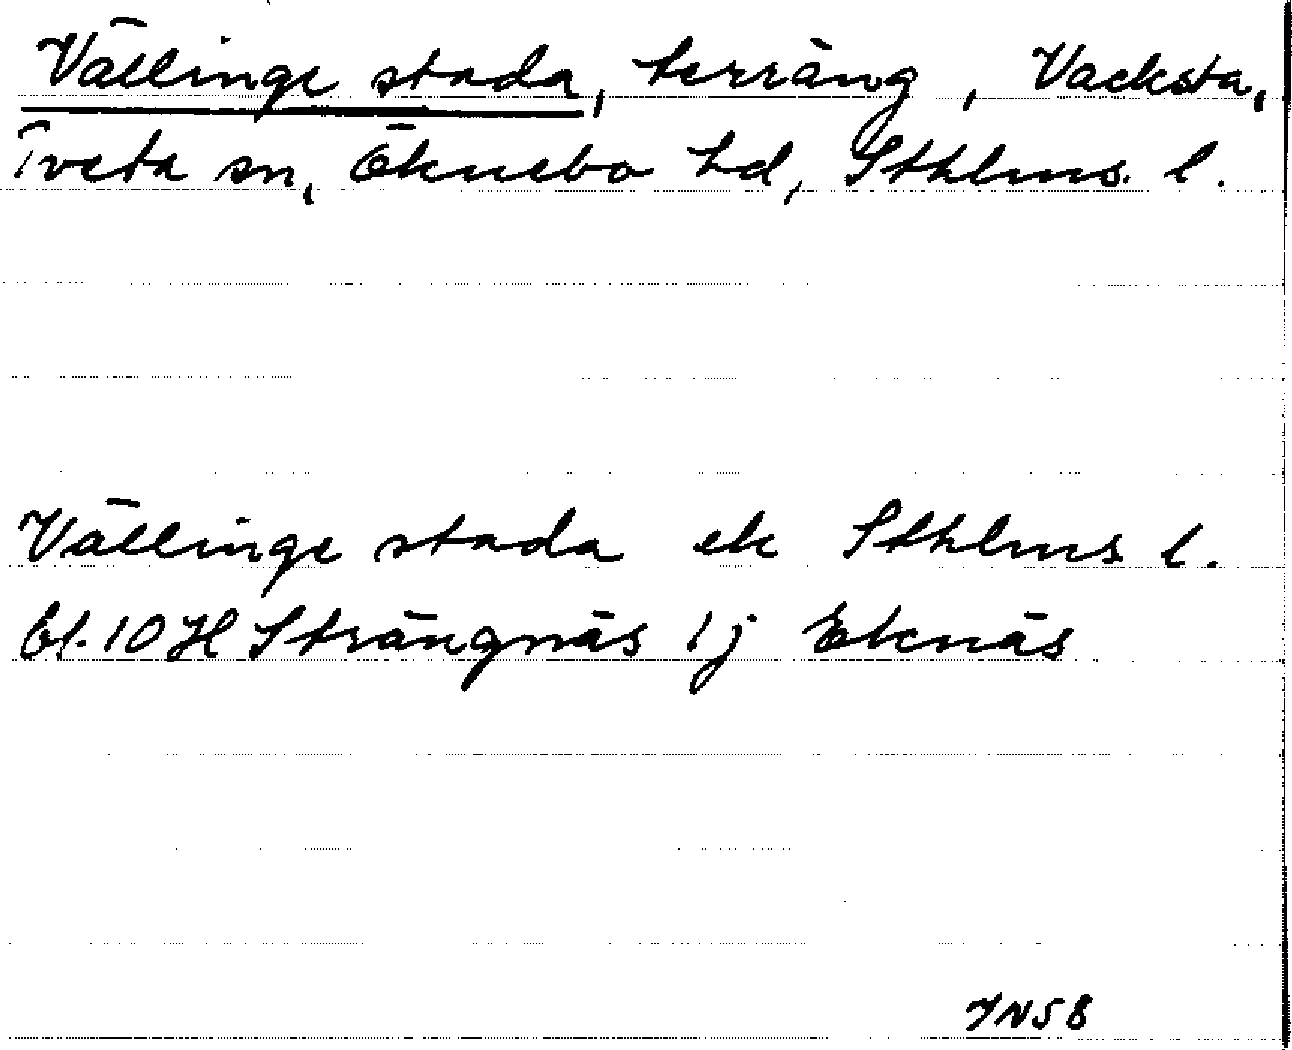 Vällinge stada, terräng, Vacksta,
Tveta sn, Öknebo hd, Sthlms l.
Vällinge stada ek Sthlms l.
bl. 10 H Strängnäs 1j Eknäs